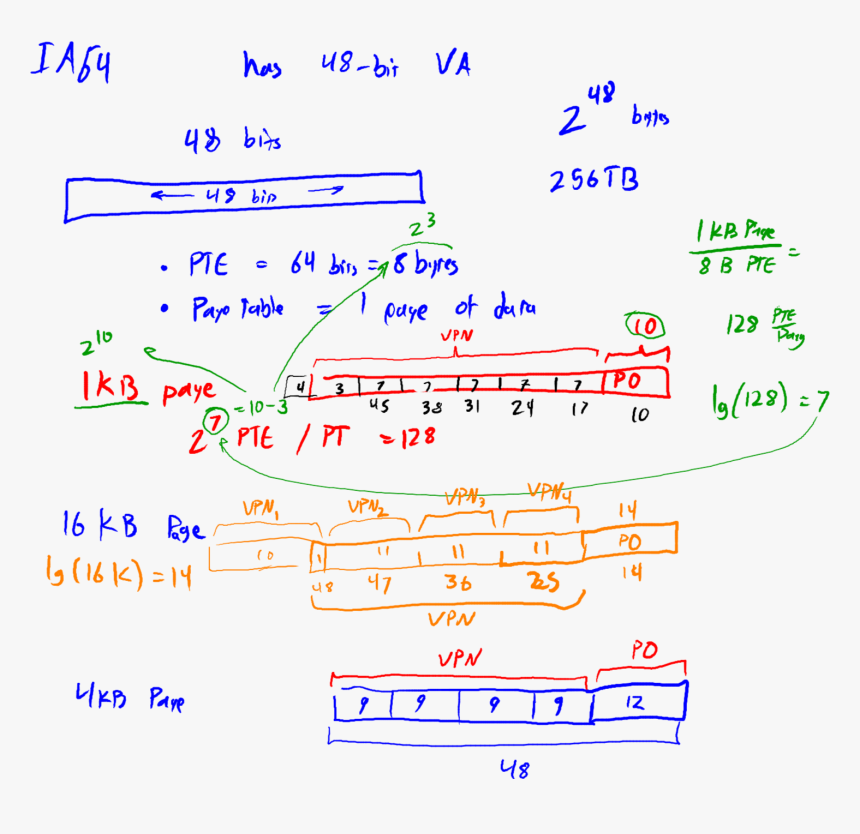 IA64 has 48-bit VA
2^48 bytes
48 bits
256TB
← 48 bits →
2^3
1 KB Page
8 B PTE =
• PTE = 64 bits = 8 bytes
• Page Table = 1 page of data
128 PTE
Page
2^10
VPN 10
1KB page
4 3 7 7 7 7 7 PO
45 38 31 24 17 10
= 10-3
lg(128) = 7
2^7 PTE / PT = 128
VPN1 VPN2 VPN3 VPN4 14
16 KB Page
10 1 11 11 11 PO
lg(16K) = 14
48 47 36 25 14
VPN
VPN PO
4KB Page
9 9 9 9 12
48